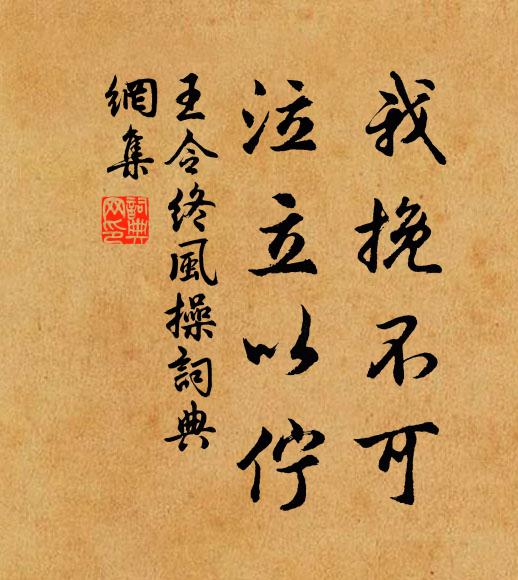 我挽不可
泣立以佇
王令终風操詞典
網集
詞典
网印